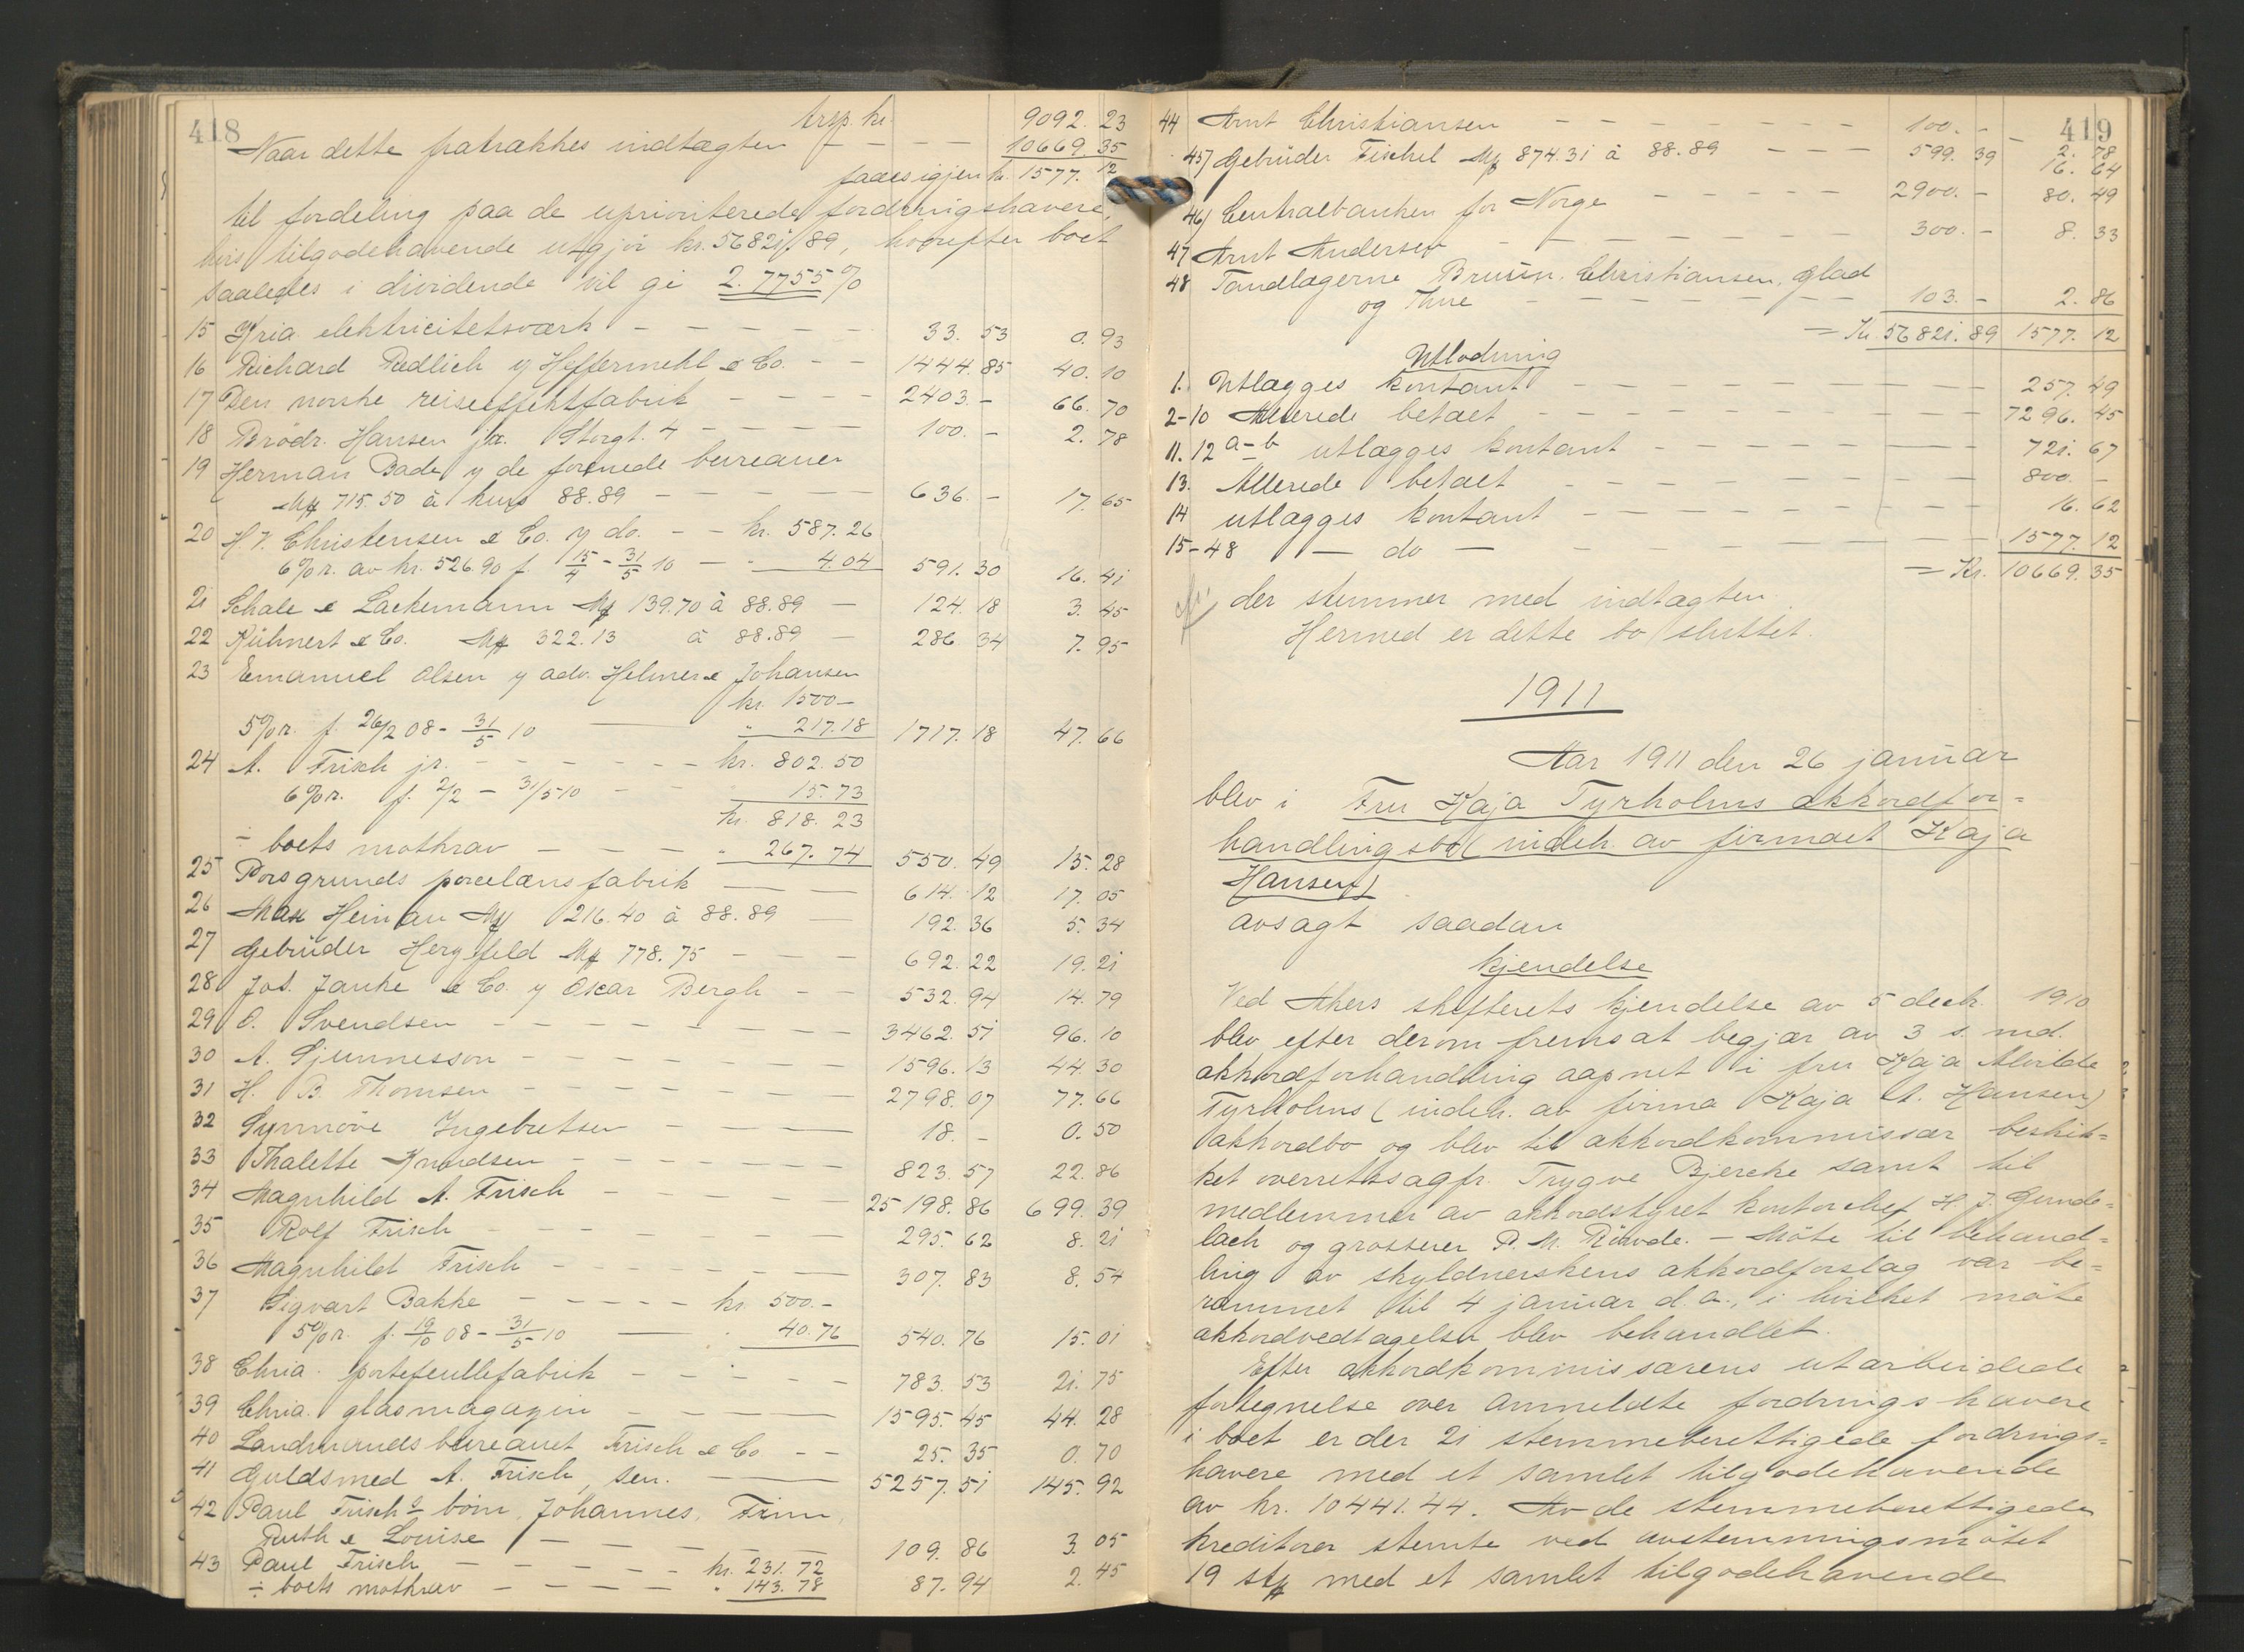 418
trsp. kr. 9092. 23
Naar dette fratrækkes indtægten - - - - 10669. 35
faaes igjen kr. 1577. 12
til fordeling paa de uprioriterede fordringshavere,
hvis tilgodehavende utgjör kr. 56821.89, hvorefter boet
saaledes i dividende vil gi 2.7755%
15 Kria elektricitetsværk - - - - - 33. 53 0. 93
16 Richard Redlich v/ Heffermehl & Co. - - 1444. 85 40. 10
17 Den norske reiseeffektfabrik - - - - 2403. - 66. 70
18 Brödr. Hansen jr. Storgt. 4 - - - - 100. - 2. 78
19 Herman Bade v/ de forenede bureauer
Mk 715.50 à kurs 88.89 - - - - - 636. - 17. 65
20 H. V. Christensen & Co. v/ do. - - kr. 587.26
6% r. av kr. 526.90 f. 15/4 - 31/5 10 - " 4.04 591. 30 16. 41
21 Schale & Lackemann Mk 139.70 à 88.89 - 124. 18 3. 45
22 Kühnert & Co. Mk 322.13 à 88.89 - 286. 34 7. 95
23 Emanuel Olsen v/ adv. Helmer & Johansen
kr. 1500-
5% r. f. 26/2 08 - 31/5 10 - " 217.18 1717. 18 47. 66
24 A. Frisch jr. - - - - - - kr. 802.50
6% r. f. 2/2 - 31/5 10 - - 15.73
kr. 818. 23
÷ boets motkrav - - - - " 267. 74 550. 49 15. 28
25 Porsgrunds porcelænsfabrik - - 614. 12 17. 05
26 Max Heiman Mk 216.40 à 88.89 - 192. 36 5. 34
27 Gebrüder Herzfeld Mk 778.75 - - - 692. 22 19. 21
28 Jos. Janke & Co. v/ Oscar Bergh - - 532. 94 14. 79
29 O. Svendsen - - - - - - - - 3462. 51 96. 10
30 A. Gjunnesson - - - - - - - 1596. 13 44. 30
31 H. B. Thomsen - - - - - - - 2798. 07 77. 66
32 Synnöve Ingebretsen - - - - 18. - 0. 50
33 Thalette Knudsen - - - - - - 823. 57 22. 86
34 Magnhild A. Frisch - - - - - - 25198. 86 699. 39
35 Rolf Frisch - - - - - - 295. 62 8. 21
36 Magnhild Frisch - - - - - - 307. 83 8. 54
37 Sigvart Bakke - - - - - kr. 500.-
5% r. f. 19/10 08 - 31/5 10 - . 40.76 540. 76 15. 01
38 Chria. portefeuillefabrik - - - - - 783. 53 21. 75
39 Chria. glasmagazin - - - - - 1595. 45 44. 28
40 Landmandsbureauet Frisch & Co - - 25. 35 0. 70
41 Guldsmed A. Frisch, sen. - - - 5257. 51 145. 92
42 Paul Frisch's börn, Johannes, Finn,
Ruth & Louise - - - - - - 109. 86 3. 05
43 Paul Frisch - - - - - kr. 231.72
÷ boets motkrav - - - - " 143.78 87. 94 2. 45
419
44 Arnt Christiansen - - - - - - - - 100. - 2. 78
45 Gebrüder Fischel Mk 874.31 à 88.89 - - - 599. 39 16. 64
46 Centralbanken for Norge - - - - - - 2900. - 80. 49
47 Arnt Andersen - - - - - - - - 300. - 8. 33
48 Tandlægerne Bruun, Christiansen, Glad
og Thue - - - - - - - - 103. - 2. 86
= Kr. 56821. 89 1577. 12
Utlodning
1. Utlægges kontant - - - - - - - - 257. 49
2-10 Allerede betalt - - - - - - - - - 7296. 45
11. 12 a-b utlægges kontant - - - - - - - 721. 67
13. Allerede betalt - - - - - - - - - 800. -
14 utlægges kontant - - - - - - - - 16. 62
15-48 - do - - - - - - - - - 1577. 12
= Kr. 10669. 35
der stemmer med indtægten.
Hermed er dette bo sluttet.
1911
Aar 1911 den 26 januar
blev i Fru Kaja Tyrholms akkordfor=
handlingsbo (indeh. av firmaet Kaja
Hansen)
avsagt saadan
kjendelse
Ved Akers skifterets kjendelse av 5 decb. 1910
blev efter derom fremsat begjær av 3 s. md.
akkordforhandling aapnet i fru Kaja Alvilde
Tyrholms (indeh. av firma Kaja A. Hansen)
akkordbo og blev til akkordkommissær beskik=
ket overretssagfr. Trygve Bjercke samt til
medlemmer av akkordstyret kontorchef H. J. Gunde=
lach og grosserer P. M. Röwde. - Möte til behand=
ling av skyldnerskens akkordforslag var be=
rammet til 4 januar d.a., i hvilket möte
akkordvedtagelse blev behandlet.
Efter akkordkommissærens utarbeidede
fortegnelse over anmeldte fordringshavere
i boet er der 21 stemmeberettigede fordrings=
havere med et samlet tilgodehavende
av kr. 10441.44. Av de stemmeberettigede
kreditorer stemte ved avstemningsmötet
19 stk med et samlet tilgodehavende